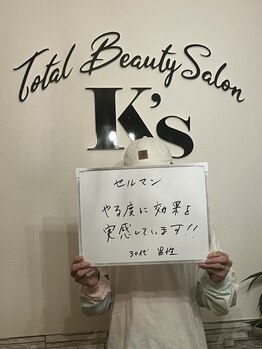 Total Beauty Salon
K's
セルマン
やる度に効果を
実感しています!!
30代 男性